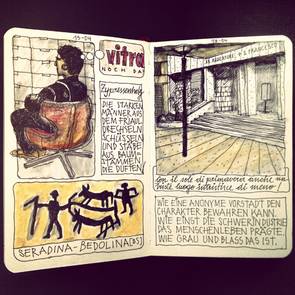 15-04
vitra
NOCH DA!
Zypressenholz
DIE STARKEN
MÄNNER AUS
DEM FRIAUL
DRECHSELN
SCHÜSSELN
UND STÄBE
AUS BAUM-
STÄMMEN,
DIE DUFTEN!
SERADINA-BEDOLINA(BS)
con il sole di primavera anche
queste luogo intristisce di meno!
WIE EINE ANONYME VORSTADT DEN
CHARAKTER BEWAHREN KANN.
WIE EINST DIE SCHWERINDUSTRIE
DAS MENSCHENLEBEN PRÄGTE,
WIE GRAU UND BLASS DAS IST.